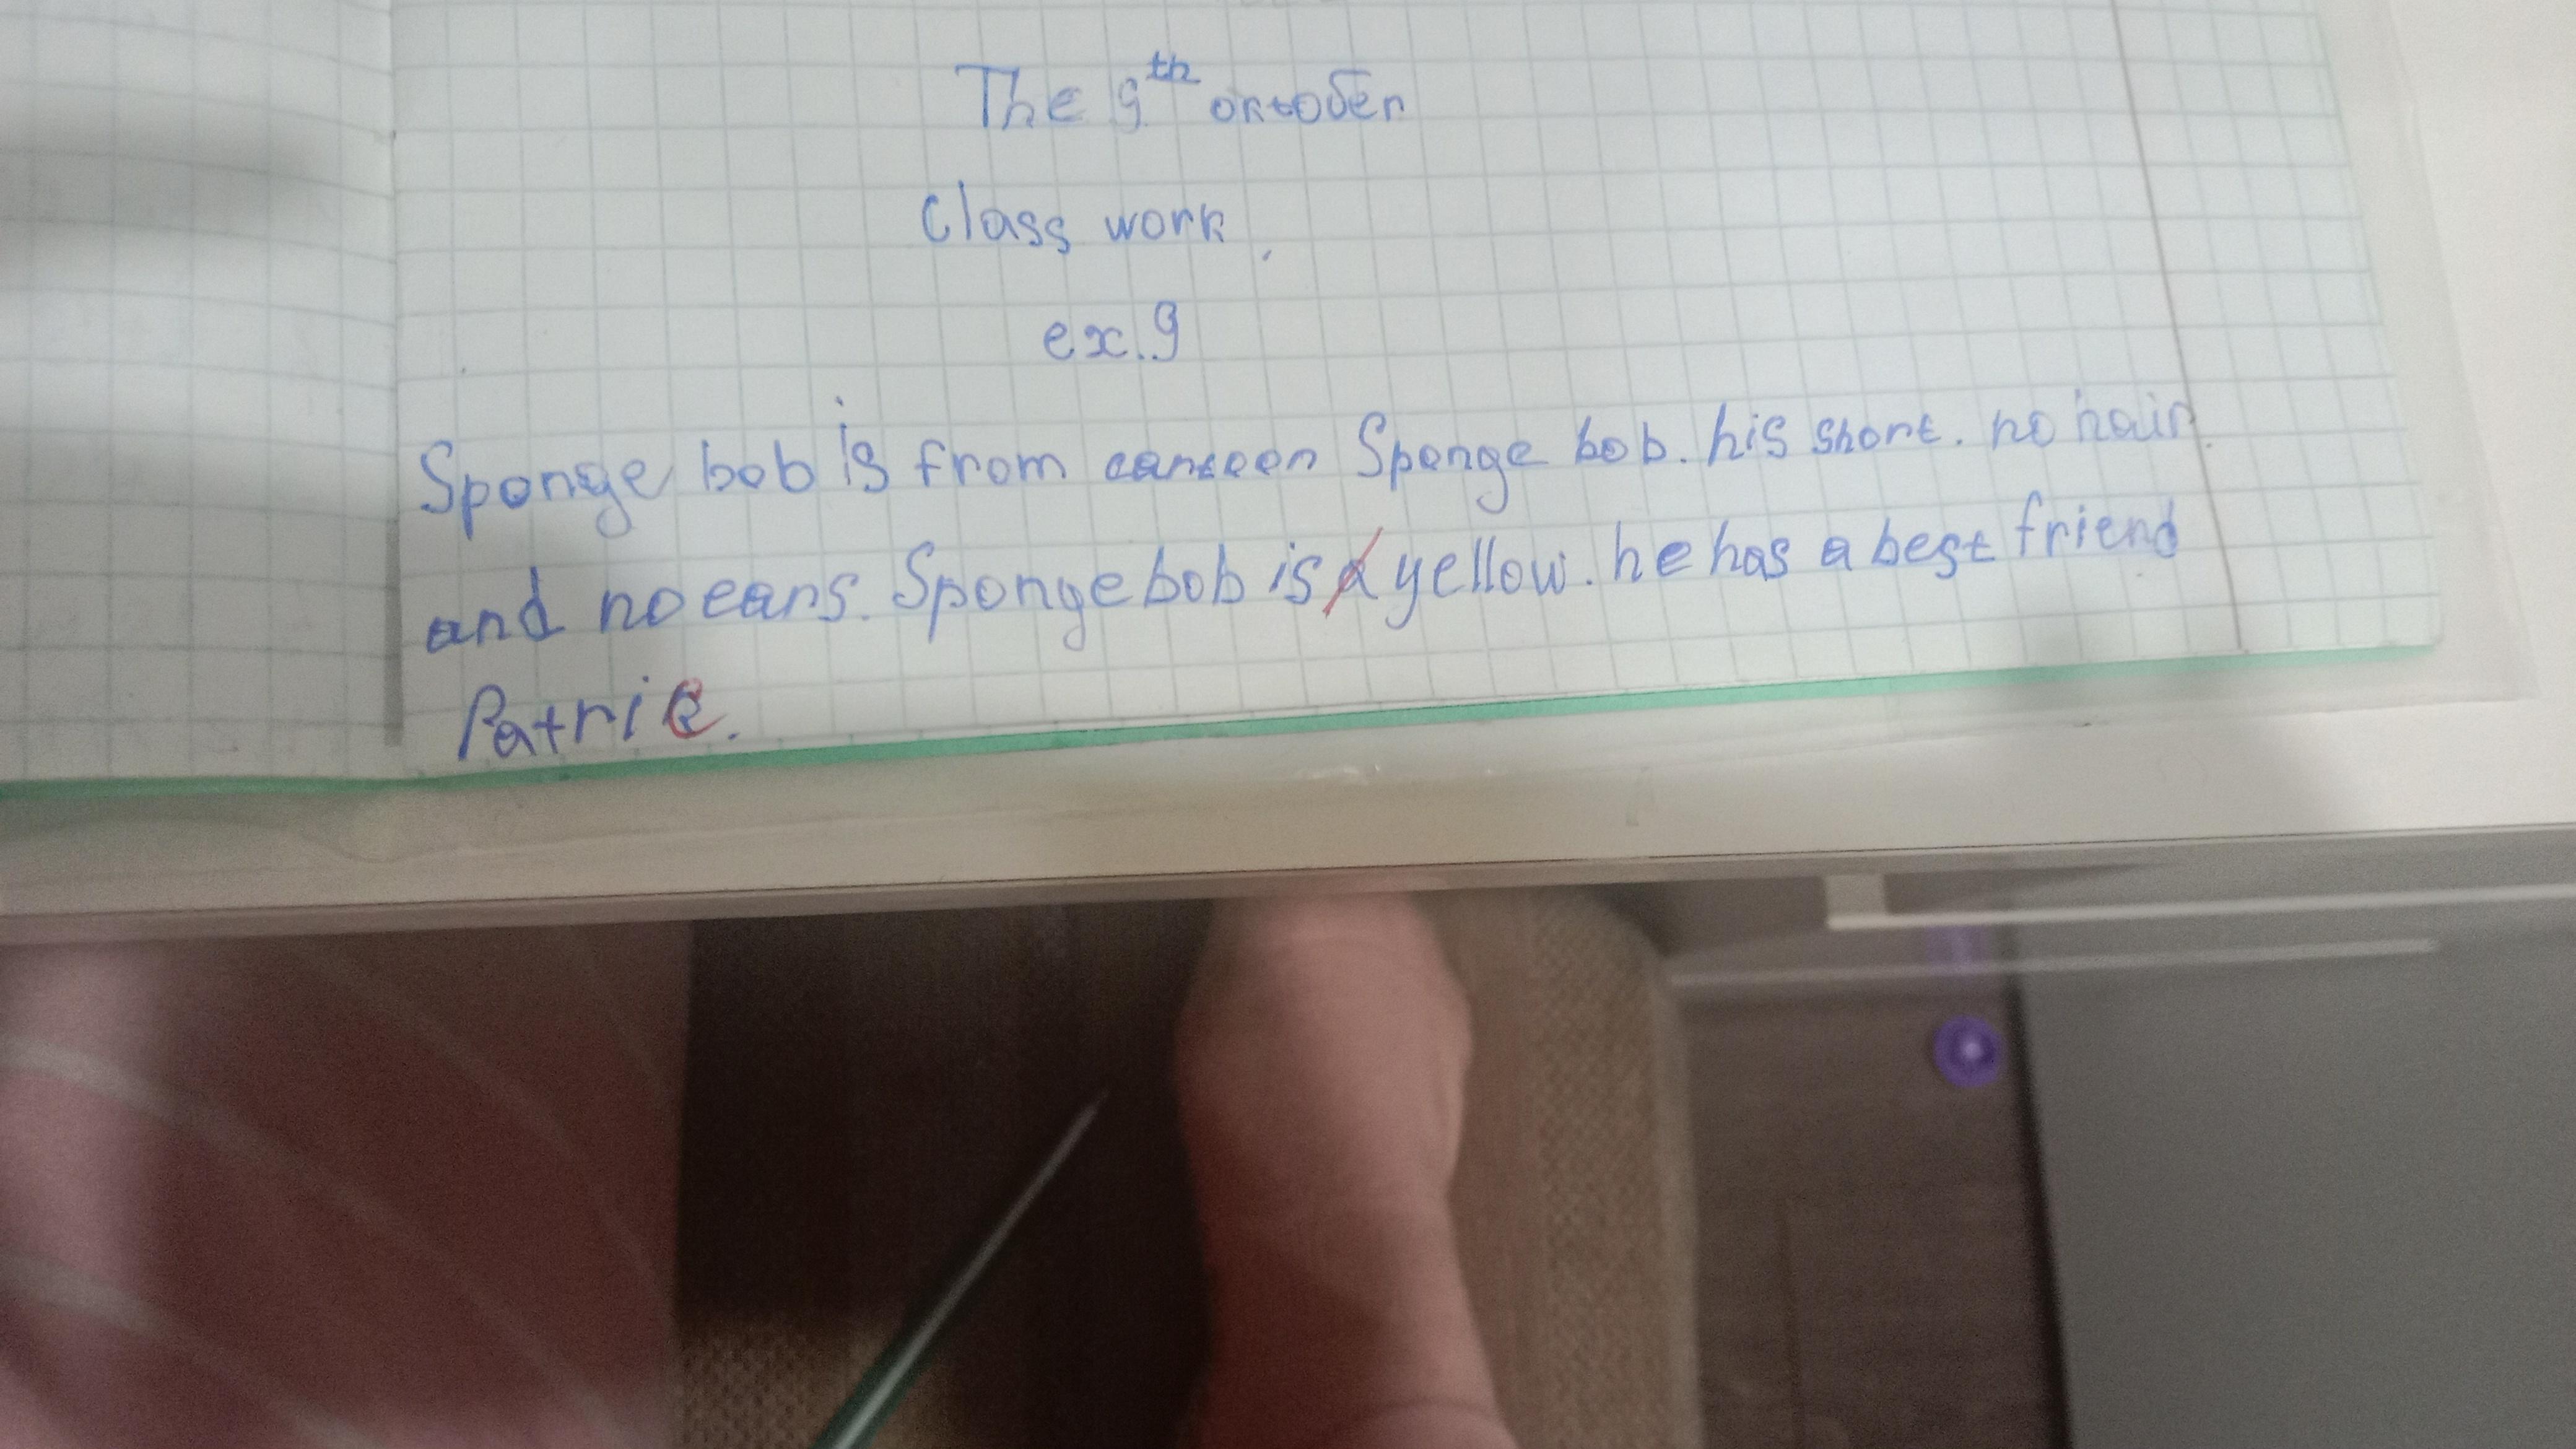 The 9th октобер
Class work
ex. 9
Sponge bob is from cartoon Sponge bob. his short. no hair
and no ears. Sponge bob is a yellow. he has a best friend
Patric.